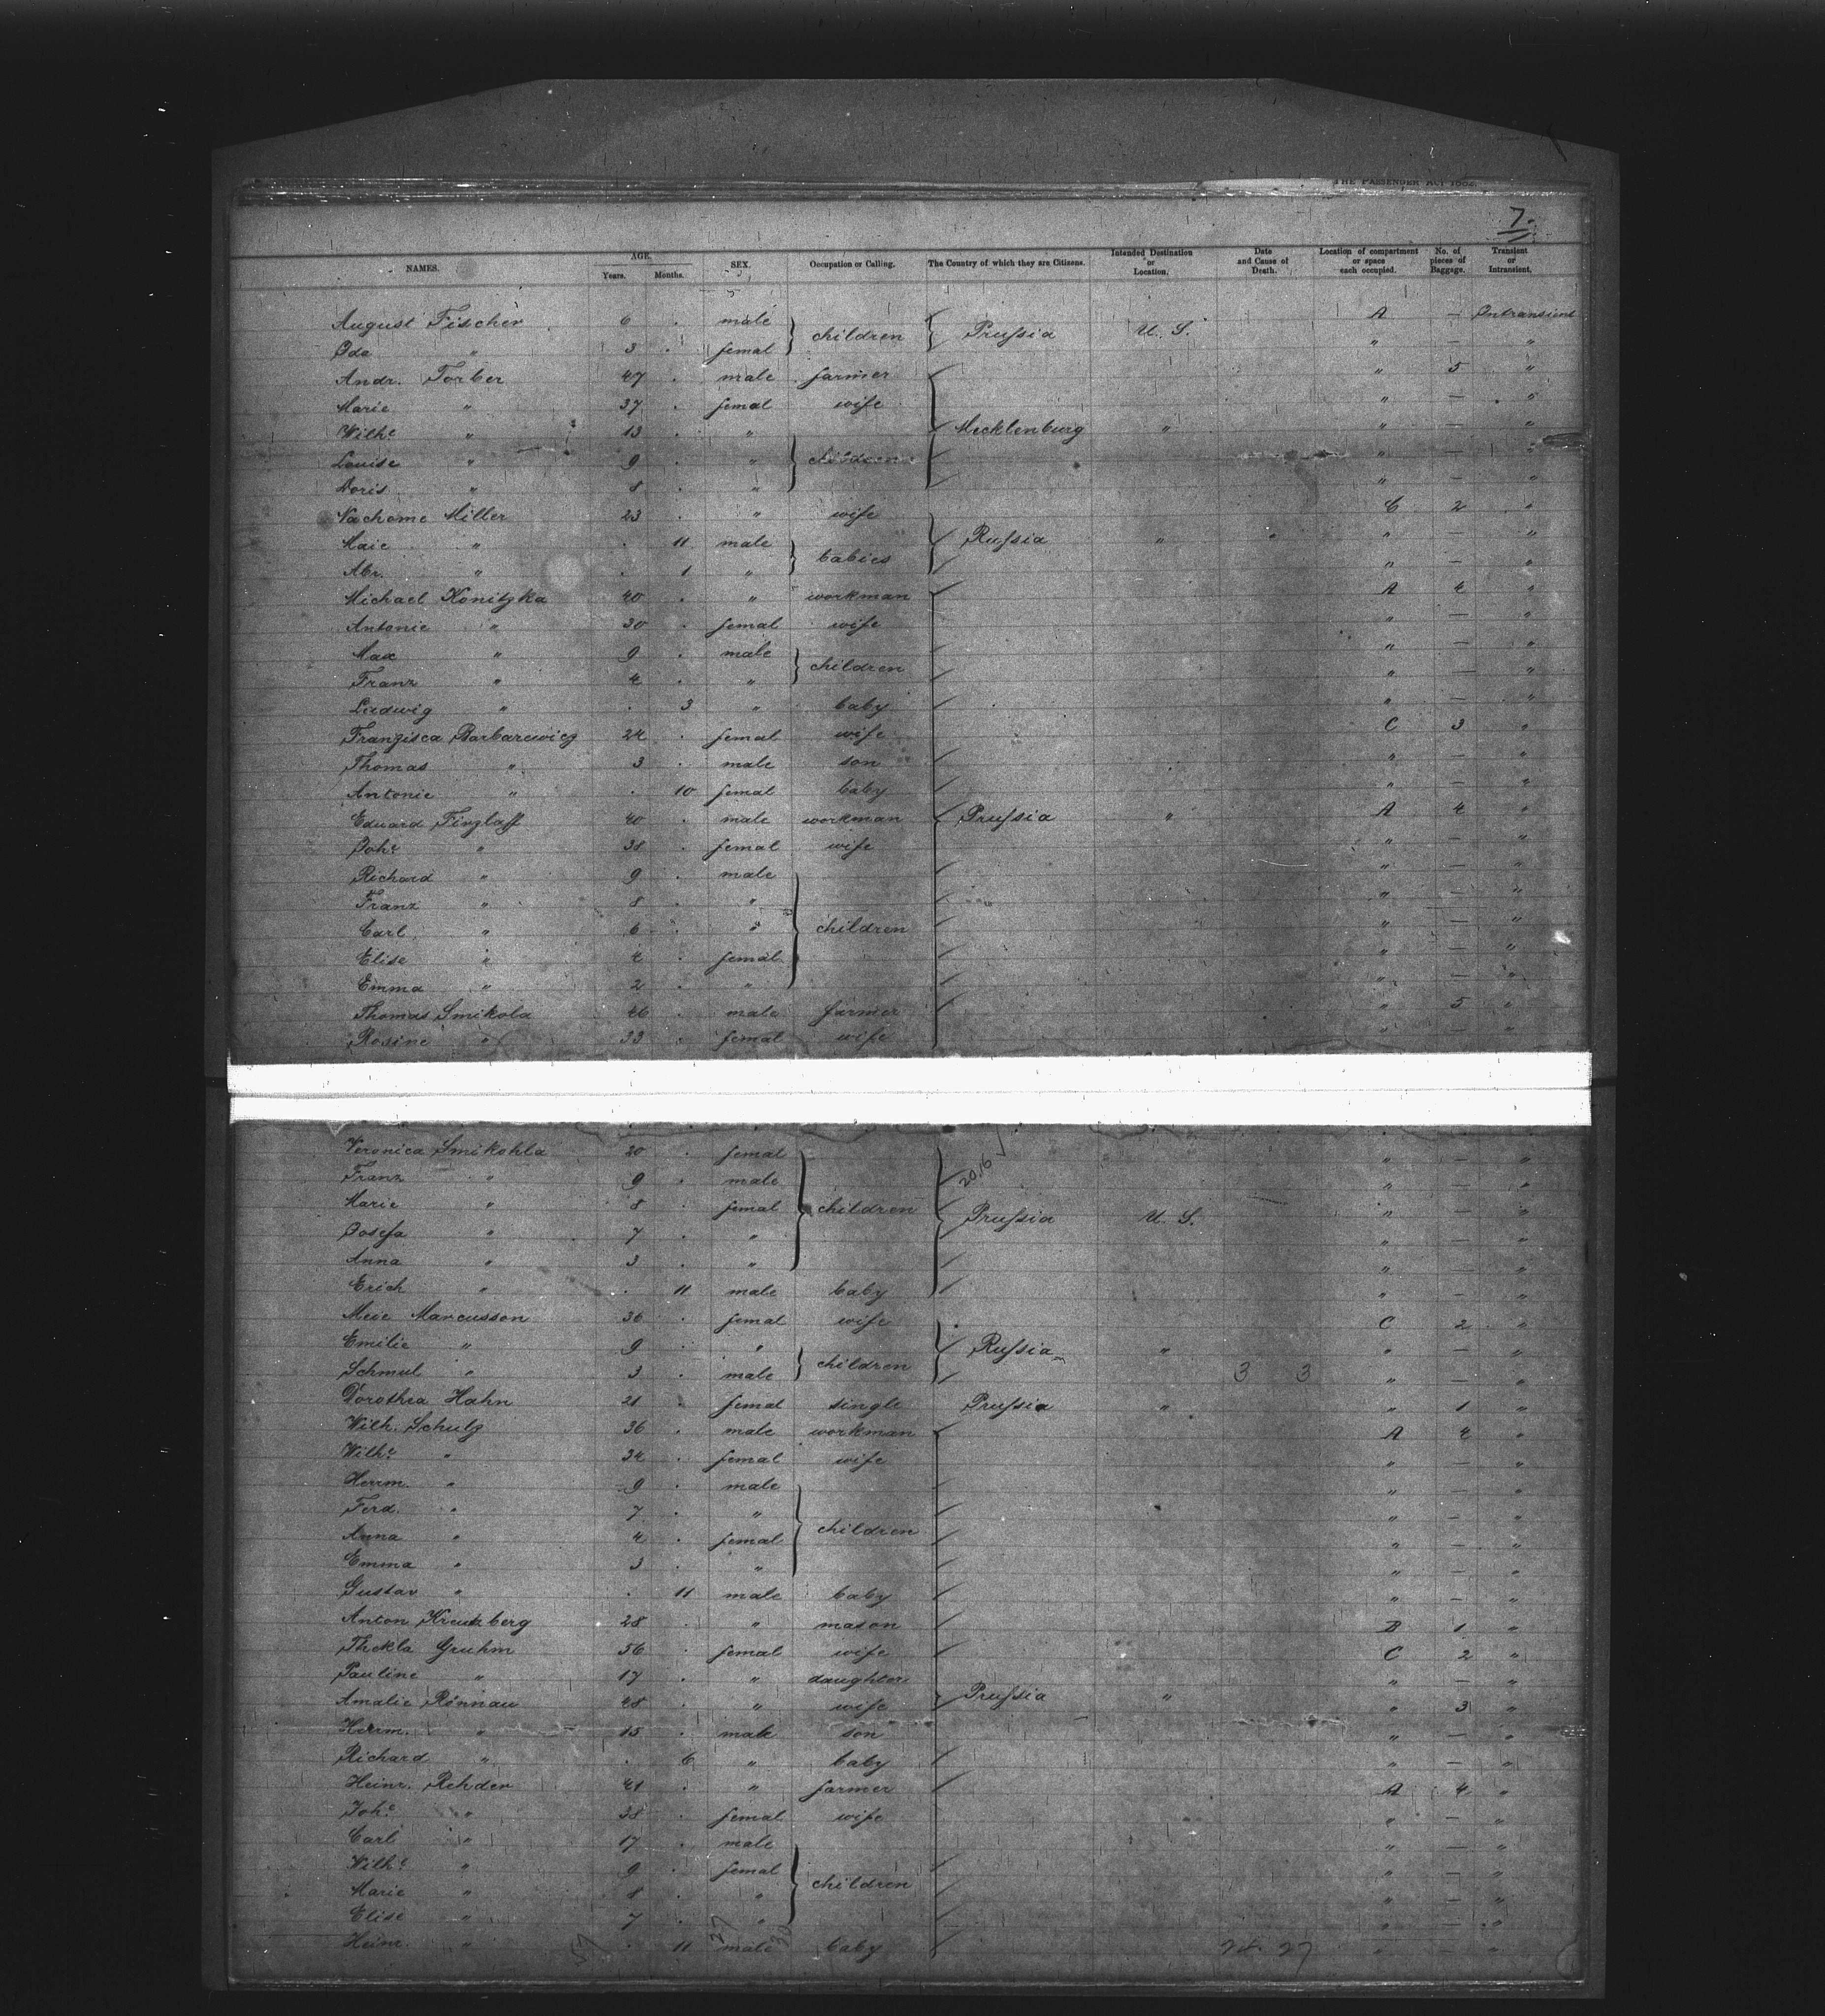 THE PASSENGER ACT 1882.
7.
NAMES. AGE. Years. Months. SEX. Occupation or Calling. The Country of which they are Citizens. Intended Destination or Location. Date and Cause of Death. Location of compartment or space each occupied. No. of pieces of Baggage. Transient or Intransient.
August Fischer 6 . male children Prussia U. S. A — Intransient
Ida " 3 . femal " — "
Andr. Torber 47 . male farmer " 5 "
Marie " 37 . femal wife " — "
Wilhe " 13 . " Mecklenburg " " — "
Louise " 9 . " children " — "
Doris " 8 . " " — "
Nachome Miller 23 . " wife C 2 "
Maie " . 11 male babies Russia " " — "
Abr. " . 1 " " — "
Michael Konitzka 40 . " workman A 4 "
Antonie " 30 . femal wife " — "
Max " 9 . male children " — "
Franz " 4 . " " — "
Ludwig " . 3 " baby " — "
Franzisca Barbarewicz 24 . femal wife C 3 "
Thomas " 3 . male son " — "
Antonie " . 10 femal baby " — "
Eduard Finzlaff 40 . male workman Prussia " A 4 "
Johe " 38 . femal wife " — "
Richard " 9 . male " — "
Franz " 8 . " " — "
Carl " 6 . " children " — "
Elise " 4 . femal " — "
Emma " 2 . " " — "
Thomas Smikola 46 . male farmer " 5 "
Rosine " 33 . femal wife " — "
Veronica Smikohla 20 . femal " — "
Franz " 9 . male 20,16 " — "
Marie " 8 . femal children Prussia U. S. " — "
Josefa " 7 . " " — "
Anna " 3 . " " — "
Erich " . 11 male baby " — "
Meie Marcusson 36 . femal wife C 2 "
Emilie " 9 . " children Russia " " — "
Schmul " 3 . male 3 3 " — "
Dorothea Hahn 21 . femal single Prussia " " 1 "
Wilh. Schulz 36 . male workman A 4 "
Wilhe " 34 . femal wife " — "
Herrm. " 9 . male " — "
Ferd. " 7 . " children " — "
Anna " 4 . femal " — "
Emma " 3 . " " — "
Gustav " . 11 male baby " — "
Anton Kreuzberg 28 . " mason B 1 "
Thekla Gruhm 56 . femal wife C 2 "
Pauline " 17 . " daughter " — "
Amalie Rönnau 48 . " wife Prussia " " 3 "
Herrm. " 15 . male son " — "
Richard " . 6 " baby " — "
Heinr. Rehder 41 . " farmer A 4 "
Johe " 38 . femal wife " — "
Carl " 17 . male " — "
Wilhe " 9 . femal children " — "
Marie " 8 . " " — "
Elise " 7 . " " — "
Heinr. " 57 . 11 27 male 30 baby 24. 27 " — "